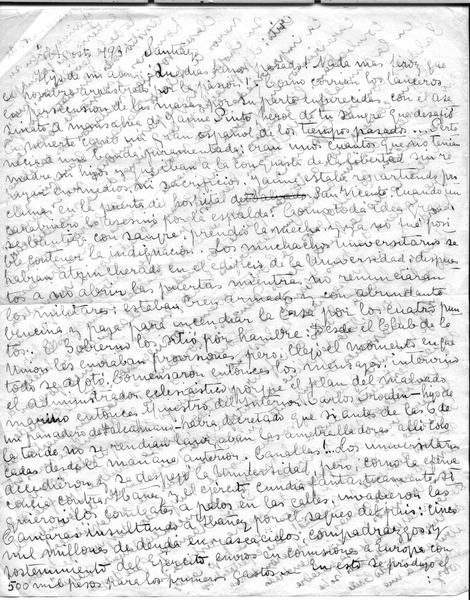 Agosto 1931 Santiago
Hijo de mi alma: Que días hemos pasado! Nada mas feroz que
el hombre arrastrado por la pasión! Como corrían los lanceros
en persecusion de las masas, por su parte enfurecidas con el ase
sinato a mansalva de Jaime Pinto, heroe de tu sangre que desafió
la muerte como un español de los tiempos pasados... Perte
necía a una banda juramentada; eran unos cuantos que no tenian
madre ni hijos y que iban a la conquista de la libertad sin re
parar en medios, ni sacrificios, y Jaime estaba repartiendo pro
clamas en la puerta del hospital de San Vicente, cuando un
carabinero lo asesinó por la espalda! Como toda idea grande
se alimenta con sangre, prendió la mecha y ya no fué posi
ble contener la indignacion. Los muchachos universitarios se
habian atrincherado en el edificio de la Universidad, dispues
tos a no abrir las puertas mientras no renunciaran
los militares; estaban bien armados y con abundante
bencina y paja para incendiar la casa por los cuatro pun
tos. El Gobierno los sitió por hambre. Desde el Club de la
Union les enviaban provisiones, pero llegó el momento en que
todo se agotó. Comenzaron entonces los mensajes: intervino
el Administrador eclesiástico porque el plan del malvado
marino entonces Ministro del Interior. Carlos Frodden - hijo de
un panadero de Talcahuano - habia decretado que si antes de las 6 de
la tarde no se rendian funcionaban las ametralladoras alli colo
cadas desde la mañana anterior. Canallas!... Los universitarios
accedieron y se despejó la Universidad, pero, como la efervec
cencia contra Ibañez y el ejército cundia fantasticamente, si
guieron los combates a palos en las calles, invadieron las
Cámaras insultando a Ibañez por el saqueo del pais: cinco
mil millones de deuda en rascacielos, compadrazgos y
sostenimiento del Ejercito, envios en comisiones a Europa con
500 mil pesos para los primeros gastos. En esto se produjo el